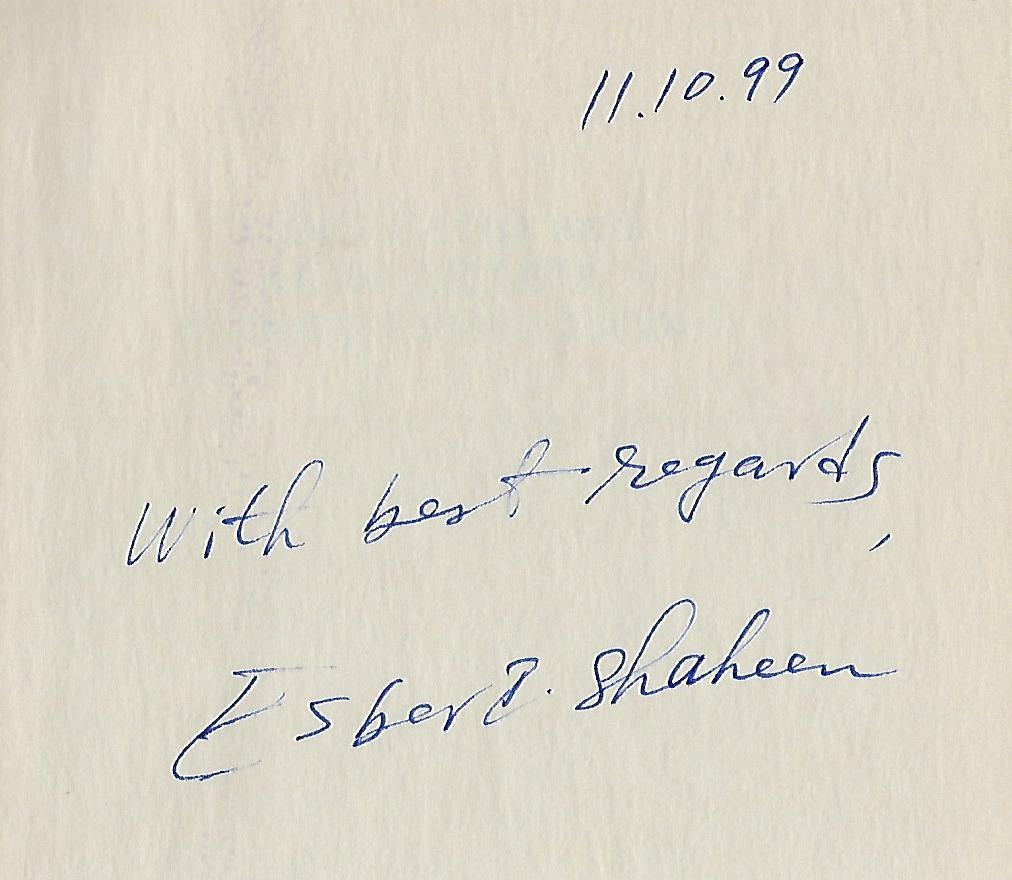 11.10.99
With best regards,
Esber I. Shaheen